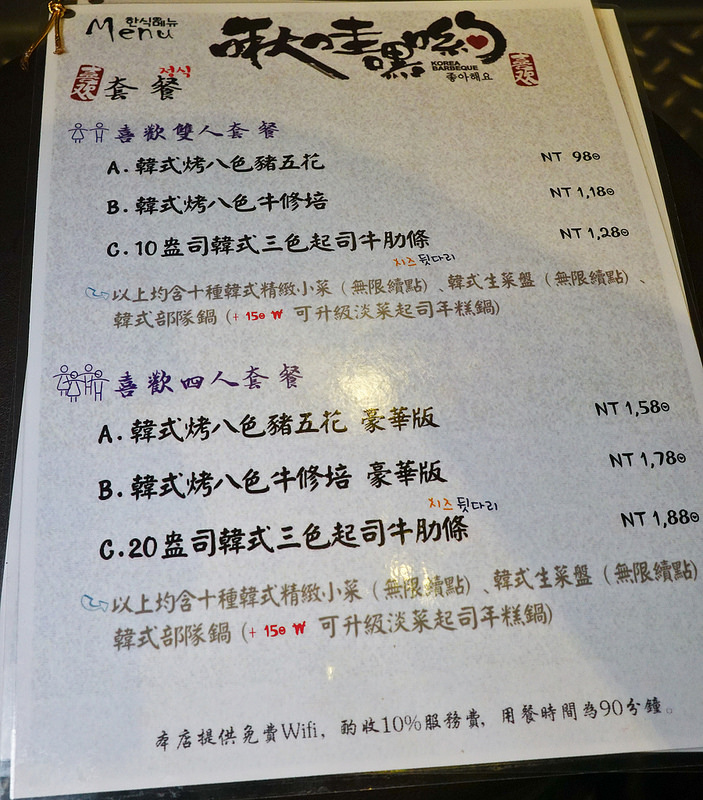 한식메뉴
Menu
啾哇嘿喲
KOREA
BARBEQUE
좋아해요
喜欢
喜欢
정식
套餐
喜歡雙人套餐
A. 韓式烤八色豬五花 NT 980
B. 韓式烤八色牛修培 NT 1,180
C. 10盎司韓式三色起司牛肋條 NT 1,280
치즈 뒷다리
以上均含十種韓式精緻小菜(無限續點)、韓式生菜盤(無限續點)、
韓式部隊鍋(+ 150 ₩ 可升級淡菜起司年糕鍋)
喜歡四人套餐
A. 韓式烤八色豬五花 豪華版 NT 1,580
B. 韓式烤八色牛修培 豪華版 NT 1,780
치즈 뒷다리
C. 20盎司韓式三色起司牛肋條 NT 1,880
以上均含十種韓式精緻小菜(無限續點)、韓式生菜盤(無限續點)
韓式部隊鍋(+ 150 ₩ 可升級淡菜起司年糕鍋)
本店提供免費Wifi, 酌收10%服務費, 用餐時間為90分鐘。